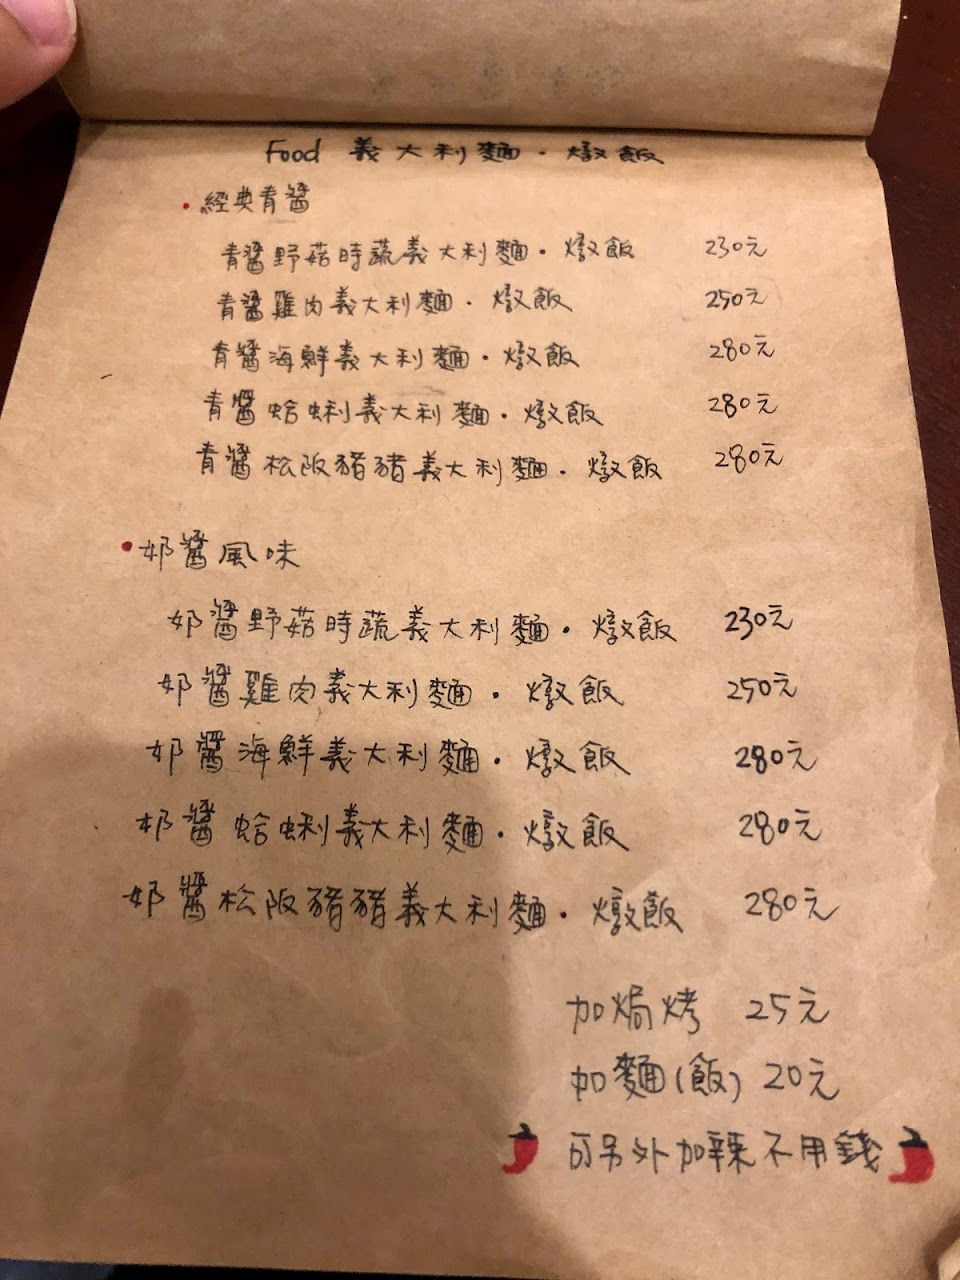 Food 義大利麵・燉飯
・經典青醬
青醬野菇時蔬義大利麵・燉飯 230元
青醬雞肉義大利麵・燉飯 250元
青醬海鮮義大利麵・燉飯 280元
青醬蛤蜊義大利麵・燉飯 280元
青醬松阪豬豬義大利麵・燉飯 280元
・奶醬風味
奶醬野菇時蔬義大利麵・燉飯 230元
奶醬雞肉義大利麵・燉飯 250元
奶醬海鮮義大利麵・燉飯 280元
奶醬蛤蜊義大利麵・燉飯 280元
奶醬松阪豬豬義大利麵・燉飯 280元
加焗烤 25元
加麵(飯) 20元
可另外加辣不用錢